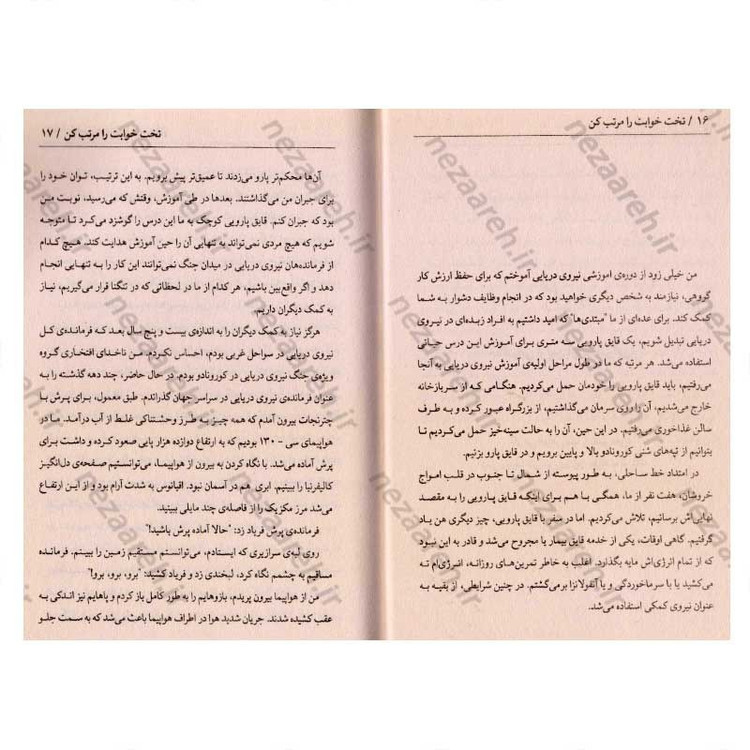 ۱۶ / تخت خوابت را مرتب کن
من خیلی زود از دوره‌ی آموزشی نیروی دریایی آموختم که برای حفظ ارزش کار
گروهی، نیازمند به شخص دیگری خواهید بود که در انجام وظایف دشوار به شما
کمک کند. برای عده‌ای از ما "مبتدی‌ها" که امید داشتیم به افراد زبده‌ای در نیروی
دریایی تبدیل شویم، یک قایق پارویی سه متری برای آموزش این درس حیاتی
استفاده می‌شد. هر مرتبه که ما در طول مراحل اولیه‌ی آموزش نیروی دریایی به آنجا
می‌رفتیم، باید قایق پارویی را خودمان حمل می‌کردیم. هنگامی که از سربازخانه
خارج می‌شدیم، آن را روی سرمان می‌گذاشتیم، از بزرگراه عبور کرده و به طرف
سالن غذاخوری می‌رفتیم. در این حین، آن را به حالت سینه‌خیز حمل می‌کردیم تا
بتوانیم از تپه‌های شنی کورونادو بالا و پایین برویم و در قایق پارو بزنیم.
در امتداد خط ساحلی، به طور پیوسته از شمال تا جنوب در قلب امواج
خروشان، هفت نفر از ما، همگی با هم برای اینکه قایق پارویی را به مقصد
نهایی‌اش برسانیم، تلاش می‌کردیم. اما در سفر با قایق پارویی، چیز دیگری هم یاد
گرفتیم. گاهی اوقات، یکی از خدمه قایق بیمار یا مجروح می‌شد و قادر به این نبود
که از تمام انرژی‌اش مایه بگذارد. اغلب به خاطر تمرین‌های روزانه، انرژی‌ام ته
می‌کشید یا با سرماخوردگی و یا آنفولانزا برمی‌گشتم. در چنین شرایطی، از بقیه به
عنوان نیروی کمکی استفاده می‌شد.
تخت خوابت را مرتب کن / ۱۷
آن‌ها محکم‌تر پارو می‌زدند تا عمیق‌تر پیش برویم. به این ترتیب، توان خود را
برای جبران من می‌گذاشتند. بعدها در طی آموزش، وقتش که می‌رسید، نوبت من
بود که جبران کنم. قایق پارویی کوچک به ما این درس را گوشزد می‌کرد تا متوجه
شویم که هیچ مردی نمی‌تواند به تنهایی آن را حین آموزش هدایت کند. هیچ کدام
از فرمانده‌هان نیروی دریایی در میدان جنگ نمی‌توانند این کار را به تنهایی انجام
دهد و اگر واقع‌بین باشیم، هر کدام از ما در لحظاتی که در تنگنا قرار می‌گیریم، نیاز
به کمک دیگران داریم.
هرگز نیاز به کمک دیگران را به اندازه‌ی بیست و پنج سال بعد که فرمانده‌ی کل
نیروی دریایی در سواحل غربی بودم، احساس نکردم. من ناخدای افتخاری گروه
ویژه‌ی جنگ نیروی دریایی در کورونادو بودم. در حال حاضر، چند دهه گذشته را به
عنوان فرمانده‌ی نیروی دریایی در سراسر جهان گذراندم. طبق معمول، برای پرش با
چترنجات بیرون آمدم که همه چیز به طرز وحشتناکی غلط از آب درآمد. ما در
هواپیمای سی - ۱۳۰ بودیم که به ارتفاع دوازده هزار پایی صعود کرده و داشت برای
پرش آماده می‌شد. با نگاه کردن به بیرون از هواپیما، می‌توانستیم صفحه‌ی دل‌انگیز
کالیفرنیا را ببینیم. ابری هم در آسمان نبود. اقیانوس به شدت آرام بود و از این ارتفاع
می‌شد مرز مکزیک را از فاصله‌ی چند مایلی ببینید.
فرمانده‌ی پرش فریاد زد: "حالا آماده پرش باشید!"
روی لبه‌ی سرازیری که ایستادم، می‌توانستم مستقیم زمین را ببینم. فرمانده
مستقیم به چشمم نگاه کرد، لبخندی زد و فریاد کشید: "برو، برو، برو!"
من از هواپیما بیرون پریدم، بازوهایم را به طور کامل باز کردم و پاهایم نیز اندکی به
عقب کشیده شدند. جریان شدید هوا در اطراف هواپیما باعث می‌شد که به سمت جلو
nezaareh.ir